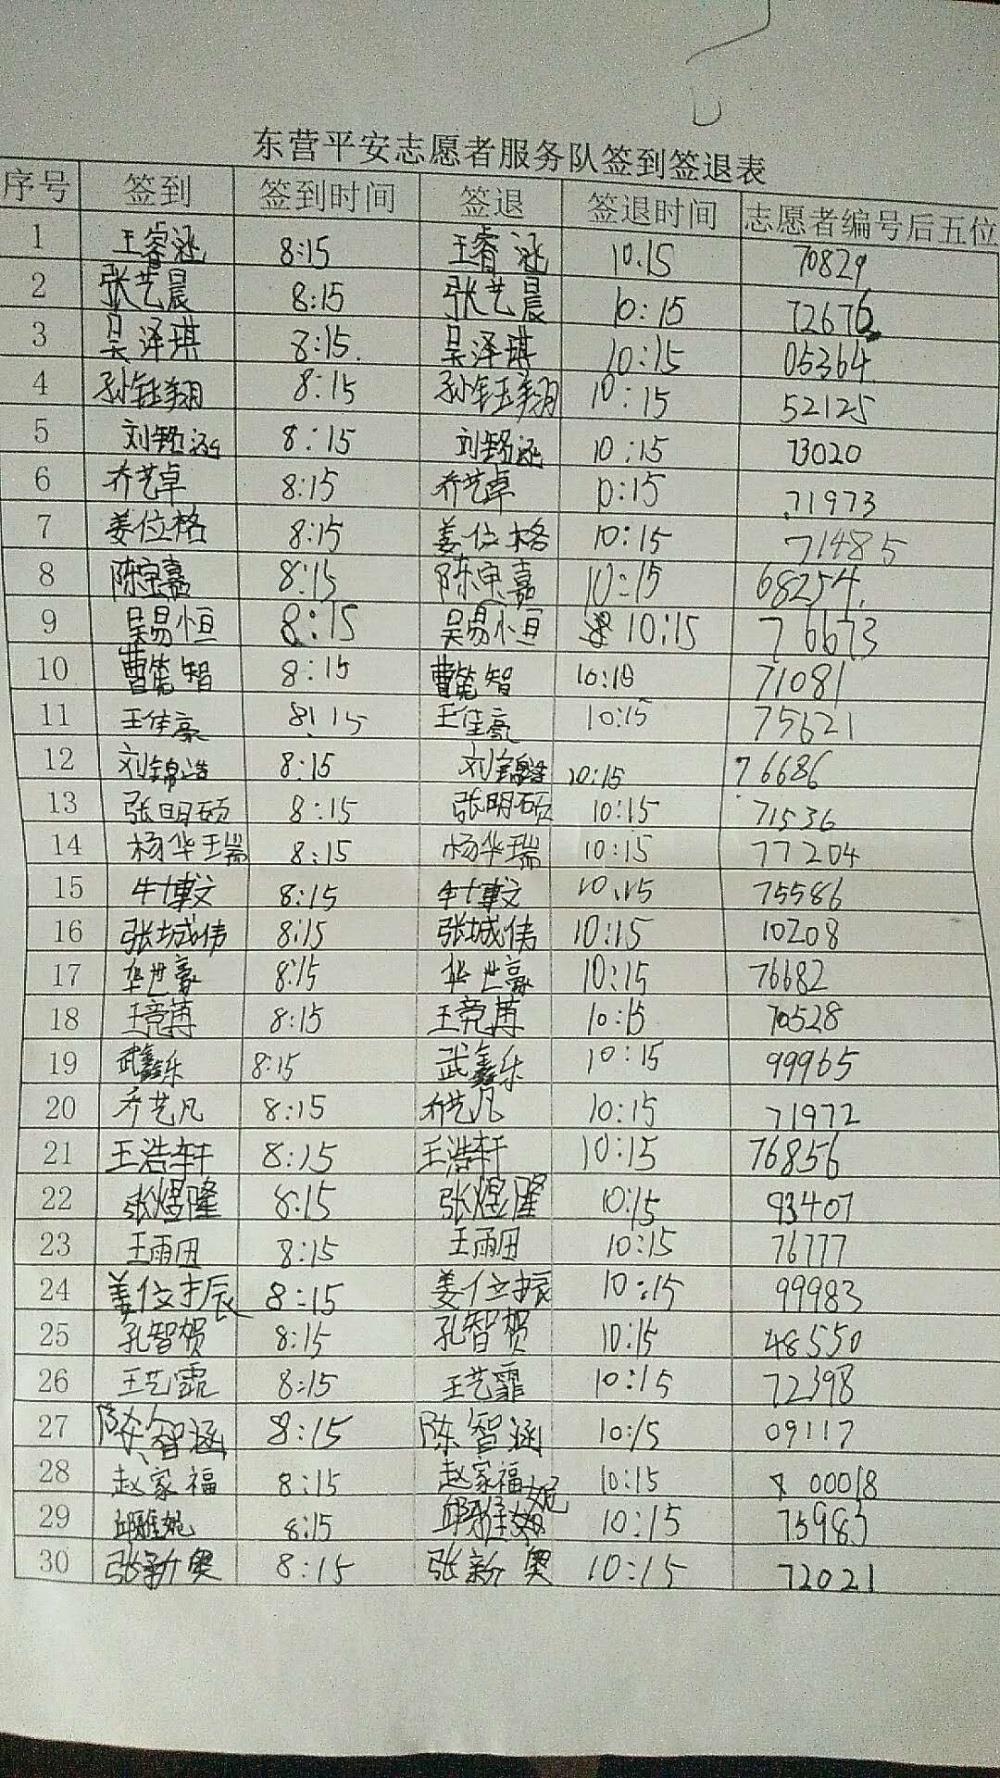 东营平安志愿者服务队签到签退表
序号 签到 签到时间 签退 签退时间 志愿者编号后五位
1 王睿涵 8:15 王睿涵 10:15 70829
2 张艺晨 8:15 张艺晨 10:15 72676
3 吴泽琪 8:15 吴泽琪 10:15 05364
4 孙钰翔 8:15 孙钰翔 10:15 52125
5 刘铭涵 8:15 刘铭涵 10:15 73020
6 乔艺卓 8:15 乔艺卓 10:15 71973
7 姜位格 8:15 姜位格 10:15 71485
8 陈宝嘉 8:15 陈宝嘉 10:15 68254
9 吴易恒 8:15 吴易恒 10:15 76673
10 曹笃智 8:15 曹笃智 71081
11 王佳豪 8:15 王佳豪 10:15 75621
12 刘锦浩 8:15 刘锦浩 10:15 76686
13 张明硕 8:15 张明硕 10:15 71536
14 杨华瑞 8:15 杨华瑞 10:15 77204
15 牛博文 8:15 牛博文 10:15 75586
16 张城伟 8:15 张城伟 10:15 10208
17 华世豪 8:15 华世豪 10:15 76682
18 王竞博 8:15 王竞博 10:15 70528
19 武鑫乐 8:15 武鑫乐 10:15 99965
20 乔艺凡 8:15 乔艺凡 10:15 71972
21 王浩轩 8:15 王浩轩 10:15 76856
22 张煜隆 8:15 张煜隆 10:15 93407
23 王雨田 8:15 王雨田 10:15 76777
24 姜位振 8:15 姜位振 10:15 99983
25 孔智贺 8:15 孔智贺 10:15 48550
26 王艺霏 8:15 王艺霏 10:15 72398
27 陈智涵 8:15 陈智涵 10:15 09117
28 赵家福 8:15 赵家福 10:15 00018
29 邱雅妮 8:15 邱雅妮 10:15 75983
30 张新奥 8:15 张新奥 10:15 72021